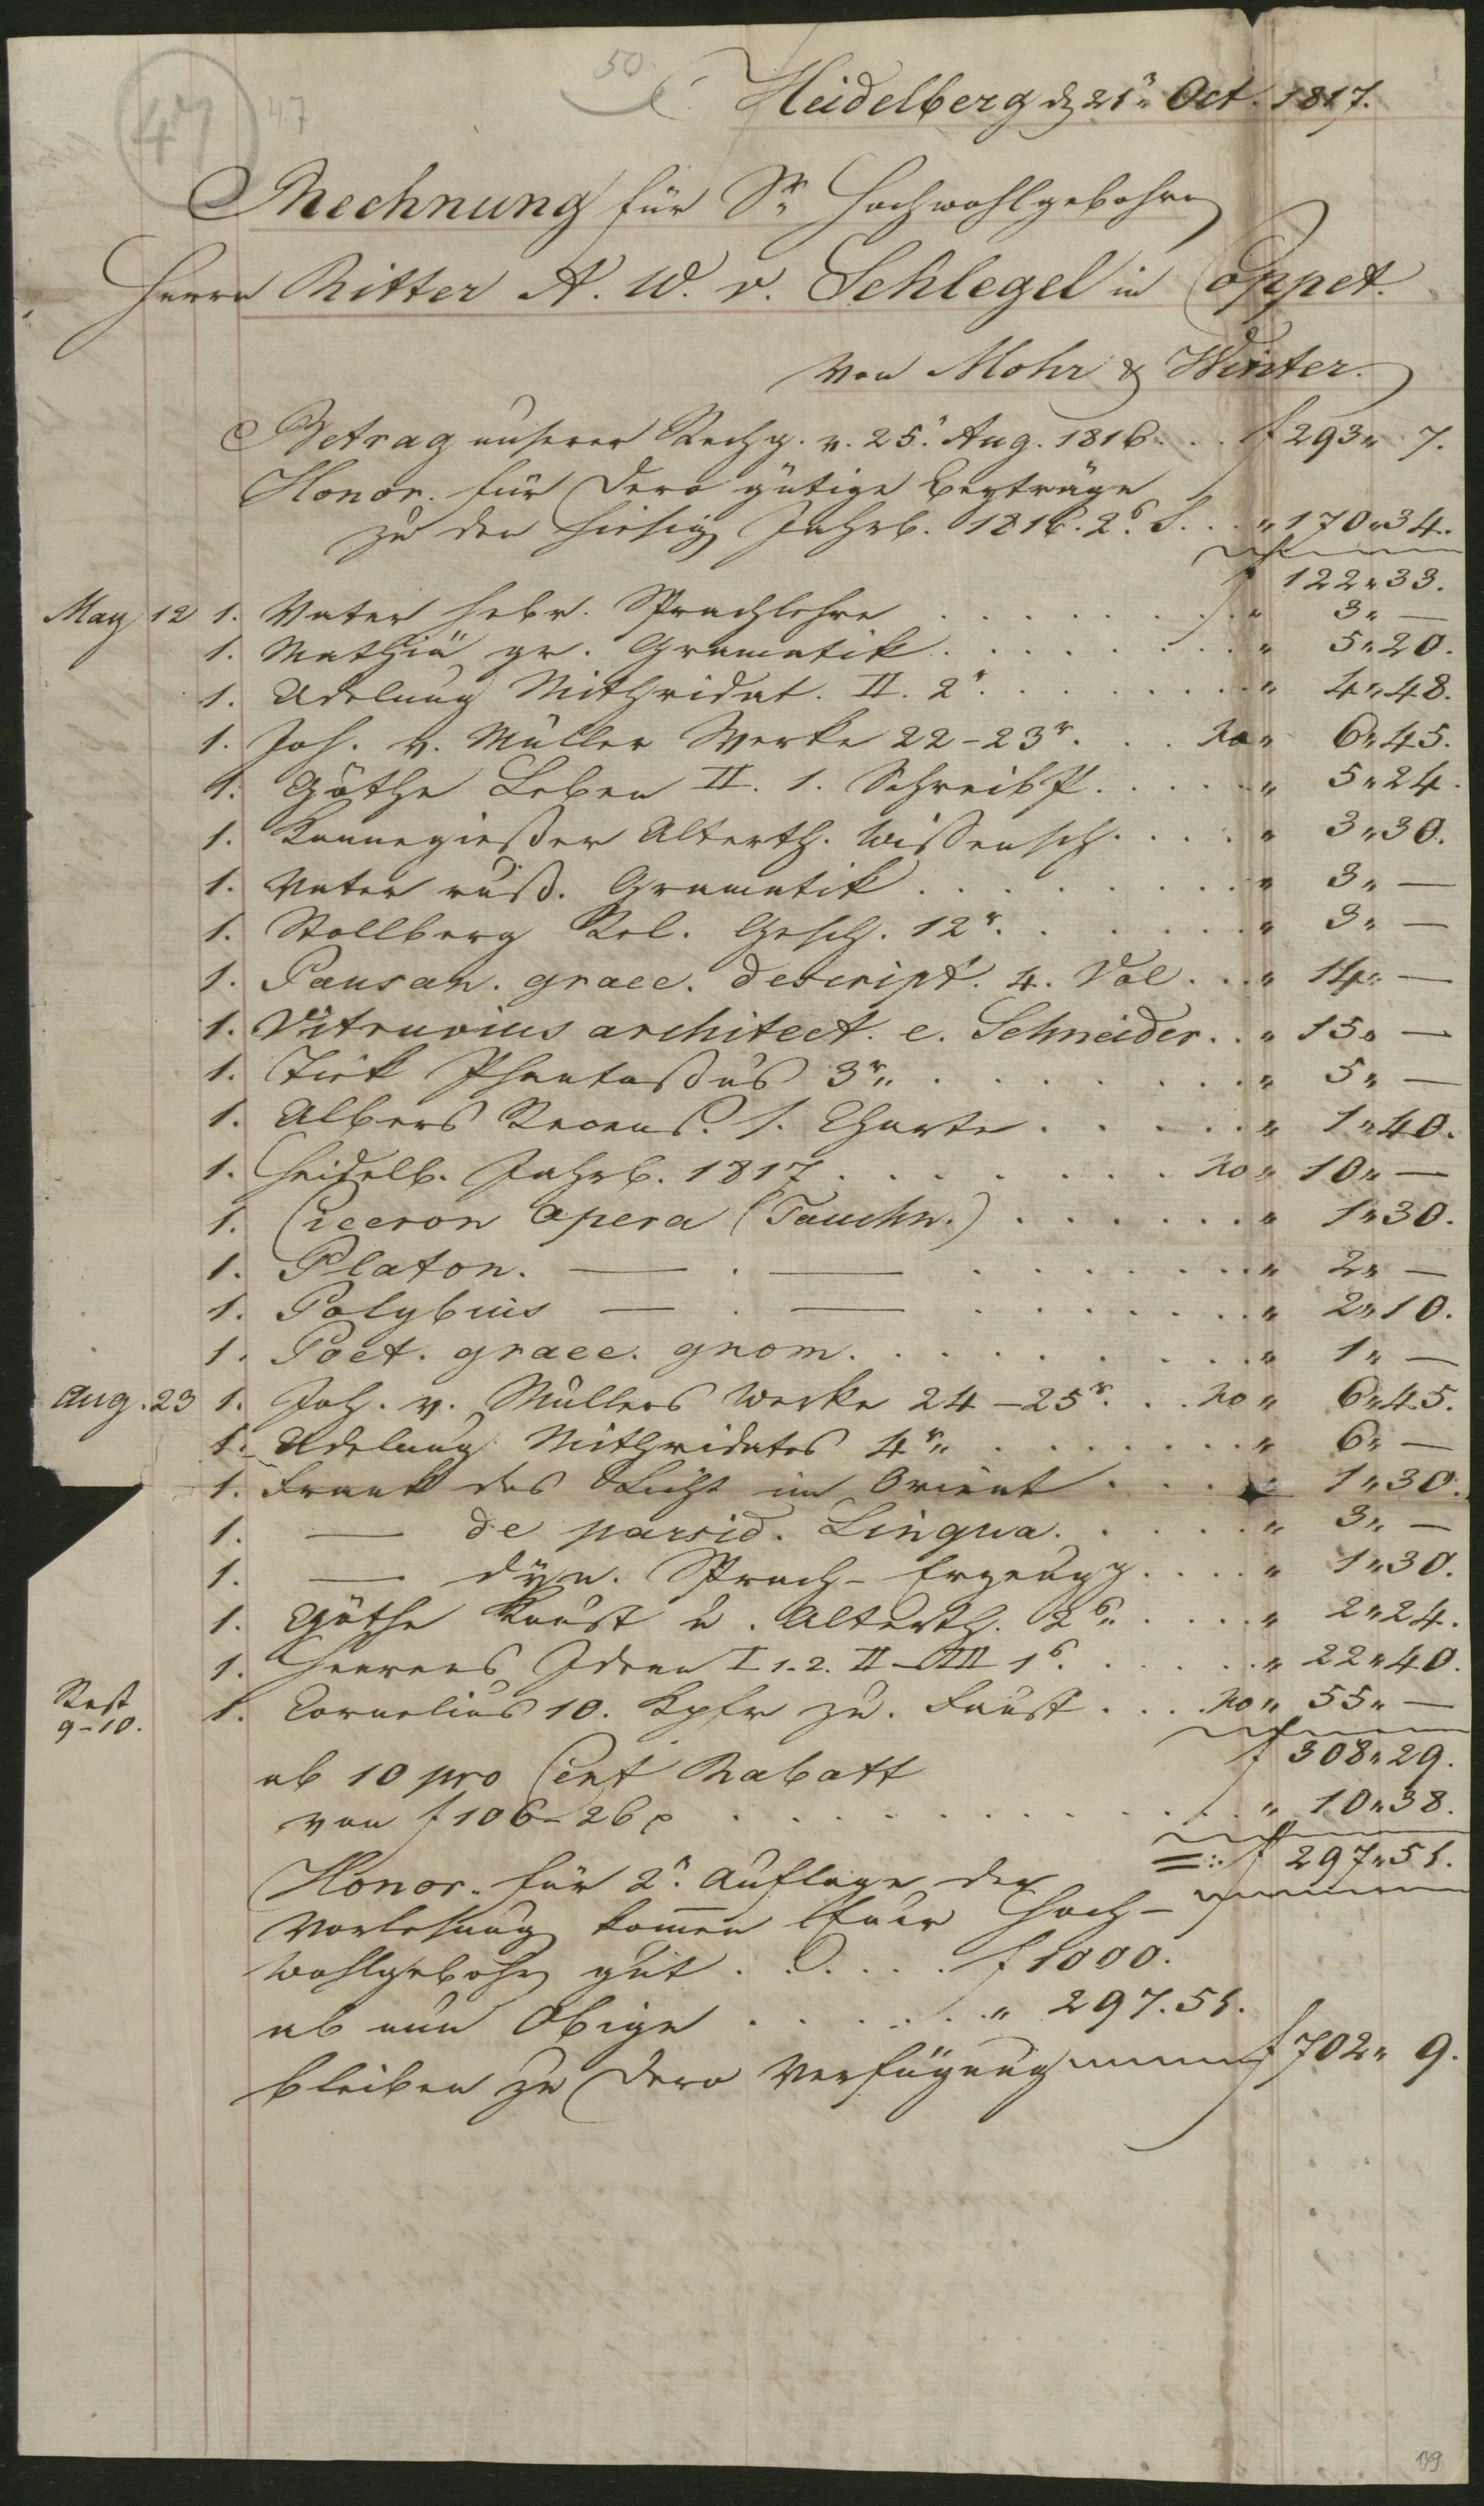 50
47
47
Heidelberg d 21n Oct. 1817.
Rechnung für Sr Hochwohlgebohren
Herrn Ritter A. W. v. Schlegel in Coppet.
von Mohr & Winter.
Betrag unserer Rechg. v. 25. Aug. 1816. . . f 293 " 7.
Honor. für Dero gütige Beyträge
zu den hiesig Jahrb. 1816. 2s H. . . " 170 " 34.
f 122 " 33.
May 12 1. Vater hebr. Sprachlehre . . . " 3 " —
1. Mathiä gr. Gramatik . . . " 5 " 20.
1. Adelung Mithridat. II. 2r . . . " 4 " 48.
1. Joh. v. Müller Werke 22-23r. . . no " 6 " 45.
1. Göthe Leben II. 1. Schreibp. . . . " 5 " 24.
1. Kannegießer Alterth. Wissensch. . . . " 3 " 30.
1. Vater russ. Gramatik . . . " 3 " —
1. Stollberg Rel. Gesch. 12r. . . . " 3 " —
1. Pausan. graec. descript. 4. Vol. . . " 14 " —
1. Vitruvius architect. e. Schneider. . " 15 " —
1. Tiek Phantassus 3r " . . . " 5 " —
1. Albers Recens. 1. Charte . . . " 1 " 40.
1. Heidelb. Jahrb. 1817 . . . no " 10 " —
1. Ciceron opera (Tauchn.) . . . " 1 " 30.
1. Platon. — . — . . . " 2 " —
1. Polybius — . — . . . " 2 " 10.
1. Poet. graec. gnom. . . . " 1 " —
Aug. 23 1. Joh. v. Müllers Werke 24-25r. . . no " 6 " 45.
1. Adelung Mithridates 4r " . . . " 6 " —
1. Frank das Licht im Orient . . . " 1 " 30.
1. — de persid. Lingua. . . . " 3 " —
1. — dyn. Sprach-Erzeugg. . . . " 1 " 30.
1. Göthe Kunst u. Alterth. 2s " . . . " 2 " 24.
1. Heerens Ideen I 1. 2. II–III 1s. . . . " 22 " 40.
Rest
9-10.
1. Cornelius 10. Kpfr zu. Faust . . . no " 55 " —
f 308 " 29.
ab 10 pro Cent Rabatt
von f 106-26 x . . . " 10 " 38.
=: f 297 " 51.
Honor. für 2r. Auflage der
Vorlesung kommen Euer Hoch-
wohlgebohr gut . . . . f 1000.
ab nun Obige . . . . " 297. 51.
bleiben zu Dero Verfügung f 702 " 9.
149